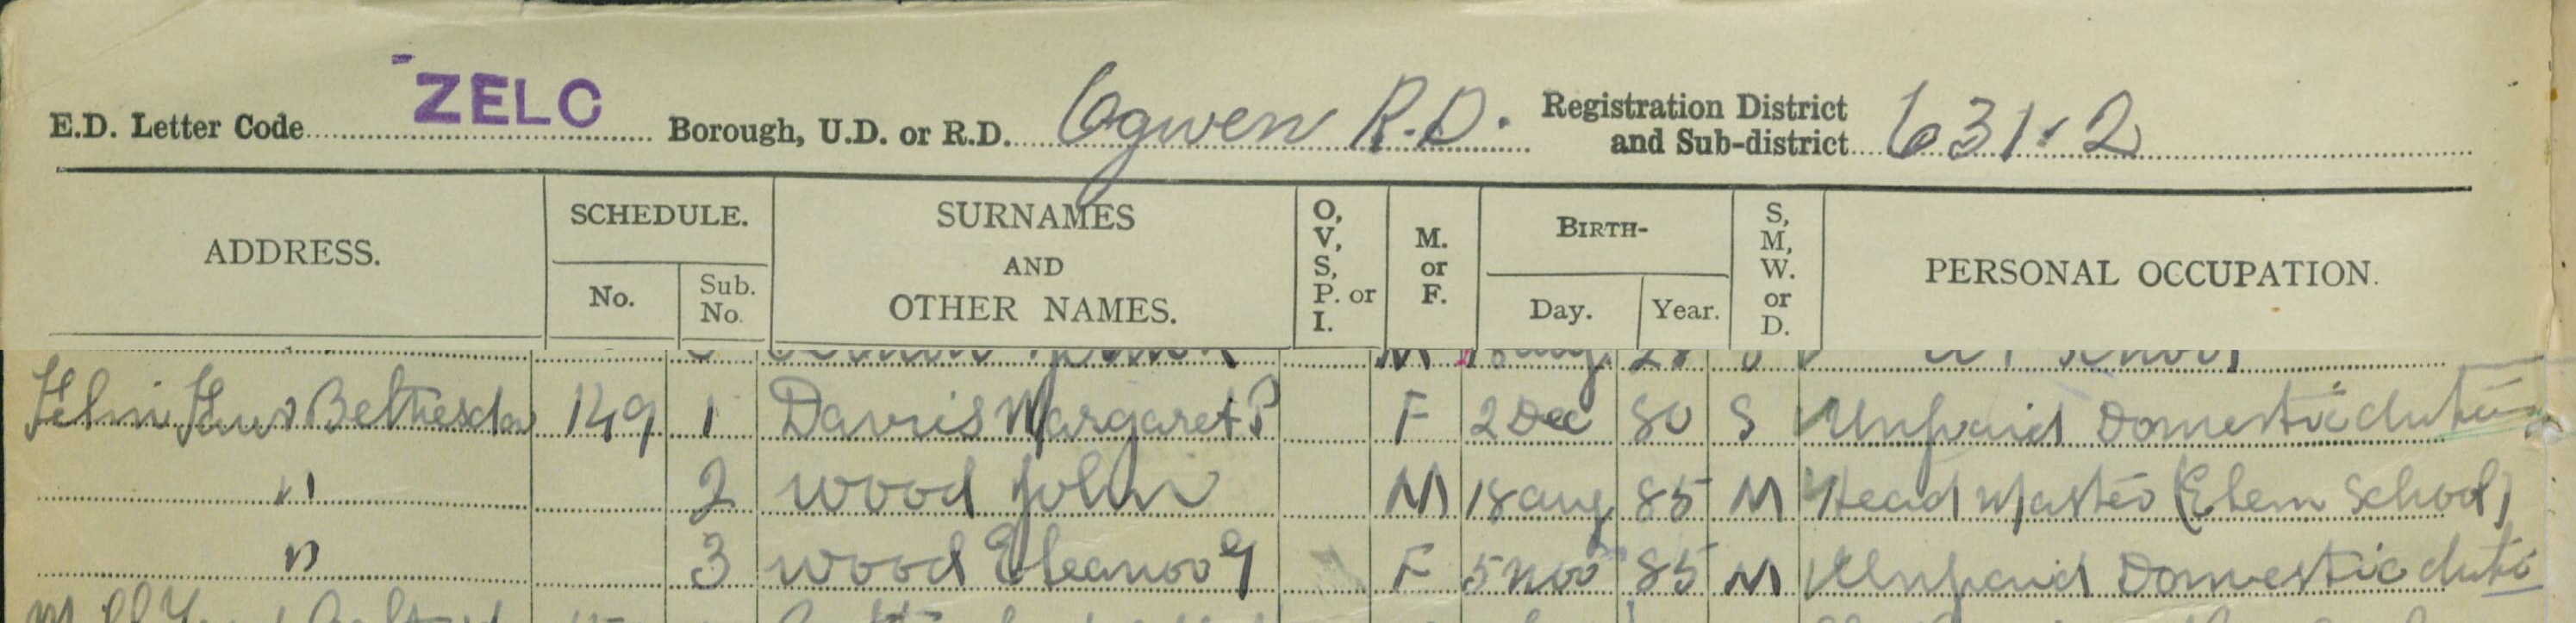 E.D. Letter Code ZELC Borough, U.D. or R.D. Ogwen R.D. Registration District and Sub-district 631.2
ADDRESS. SCHEDULE. No. Sub. No. SURNAMES AND OTHER NAMES. O, V, S, P. or I. M. or F. BIRTH- Day. Year. S, M, W. or D. PERSONAL OCCUPATION.
Felin Bethesda 149 1 Davies Margaret P F 2 Dec 80 S Unpaid Domestic duties
" 2 Wood John M 18 Aug 85 M Head Master (Elem School)
" 3 Wood Eleanor G F 5 Nov 85 M Unpaid Domestic duties